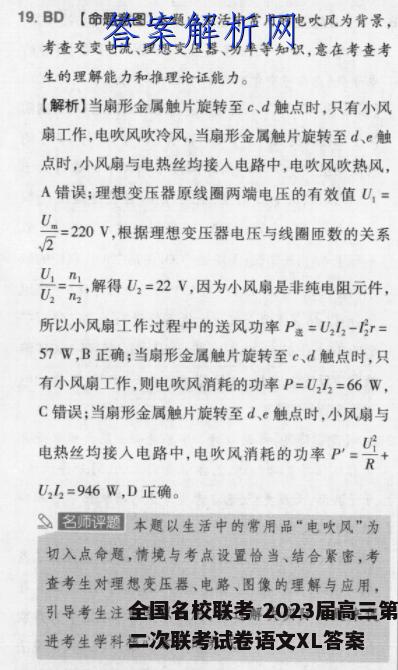 19. BD 【命题意图】本题以生活中常用的电吹风为背景,
答案解析网
考查交变电流、理想变压器、功率等知识,意在考查考
生的理解能力和推理论证能力。
【解析】当扇形金属触片旋转至 c、d 触点时,只有小风
扇工作,电吹风吹冷风,当扇形金属触片旋转至 d、e 触
点时,小风扇与电热丝均接入电路中,电吹风吹热风,
A 错误;理想变压器原线圈两端电压的有效值 U₁ =
Uₘ/√2 = 220 V,根据理想变压器电压与线圈匝数的关系
U₁/U₂ = n₁/n₂,解得 U₂ = 22 V,因为小风扇是非纯电阻元件,
所以小风扇工作过程中的送风功率 P送 = U₂I₂ − I₂²r =
57 W,B 正确;当扇形金属触片旋转至 c、d 触点时,只
有小风扇工作,则电吹风消耗的功率 P = U₂I₂ = 66 W,
C 错误;当扇形金属触片旋转至 d、e 触点时,小风扇与
电热丝均接入电路中,电吹风消耗的功率 P′ = U₁²/R +
U₂I₂ = 946 W,D 正确。
名师评题 本题以生活中的常用品“电吹风”为
切入点命题,情境与考点设置恰当、结合紧密,考
查考生对理想变压器、电路、图像的理解与应用,
引导考生注
全国名校联考 2023届高三第
二次联考试卷语文XL答案
进考生学科